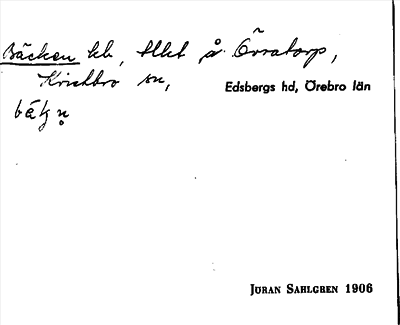 Bäcken kb, tllet å Övratorp,
Knistbro sn,
Edsbergs hd, Örebro län
bäkn̥
JÖRAN SAHLGREN 1906